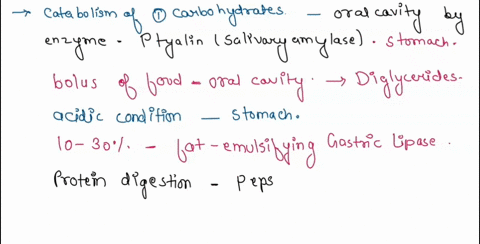 → Catabolism of ① carbohydrates — oral cavity by
enzyme - Ptyalin (Salivary amylase). stomach.
bolus of food - oral cavity. → Diglycerides-
acidic condition — stomach.
10-30% - fat-emulsifying Gastric Lipase.
Protein digestion - Peps